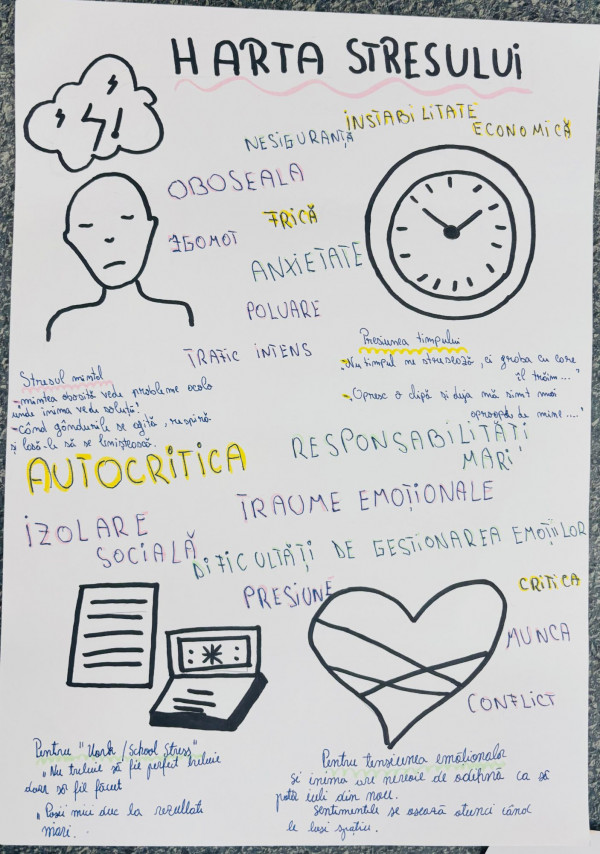 HARTA STRESULUI
INSTABILITATE
ECONOMICĂ
NESIGURANȚĂ
OBOSEALA
FRICĂ
ZGOMOT
ANXIETATE
POLUARE
TRAFIC INTENS
Presiunea timpului
-„Nu timpul ne stresează, ci graba cu care
îl trăim..."
-„Opresc o clipă și deja mă simt mai
aproape de mine...."
Stresul mintal
-mintea obosită vede probleme acolo
unde inima vede soluții!
-Când gândurile se agită, respiră
și lasă-le să se liniștească.
AUTOCRITICA
RESPONSABILITĂȚI
MARI
TRAUME EMOȚIONALE
IZOLARE
SOCIALĂ
DIFICULTĂȚI DE GESTIONAREA EMOȚIILOR
PRESIUNE
CRITICA
MUNCA
CONFLICT
Pentru "Work/School Stress"
„Nu trebuie să fie perfect trebuie
doar să fie făcut
„Pașii mici duc la rezultati
mari.
Pentru tensiunea emoționalor
Și inima are nevoie de odihnă ca să
poată iubi din nou.
Sentimentele se așează atunci când
le lași spațiu.